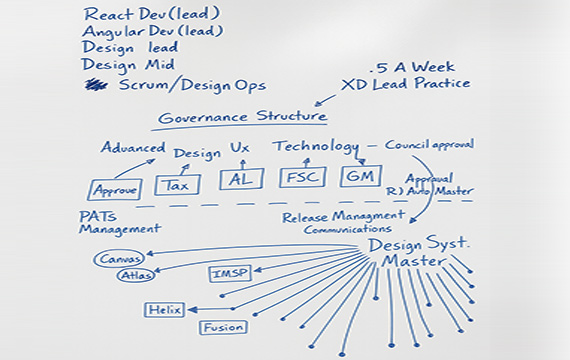 React Dev (lead)
Angular Dev (lead)
Design lead
Design Mid
Scrum/Design Ops
.5 A Week
XD Lead Practice
Governance Structure
Advanced Design Ux Technology – Council approval
Approve Tax AL FSC GM
Approval
R) Auto Master
PATs
Management
Release Managment
Communications
Design Syst.
Master
Canvas
Atlas
IMSP
Helix
Fusion